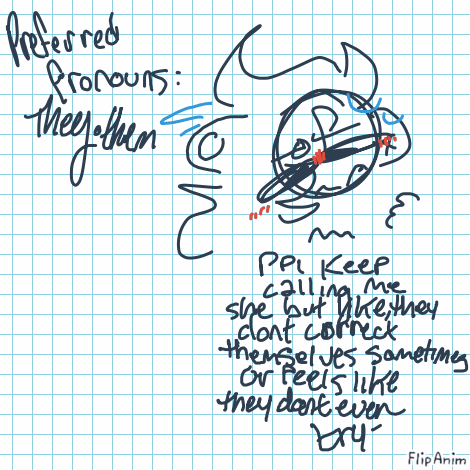 Preferred
Pronouns:
they them
PPl keep
calling me
she but like, they
dont correck
themselves sometimes
or feels like
they dont even
try
FlipAnim